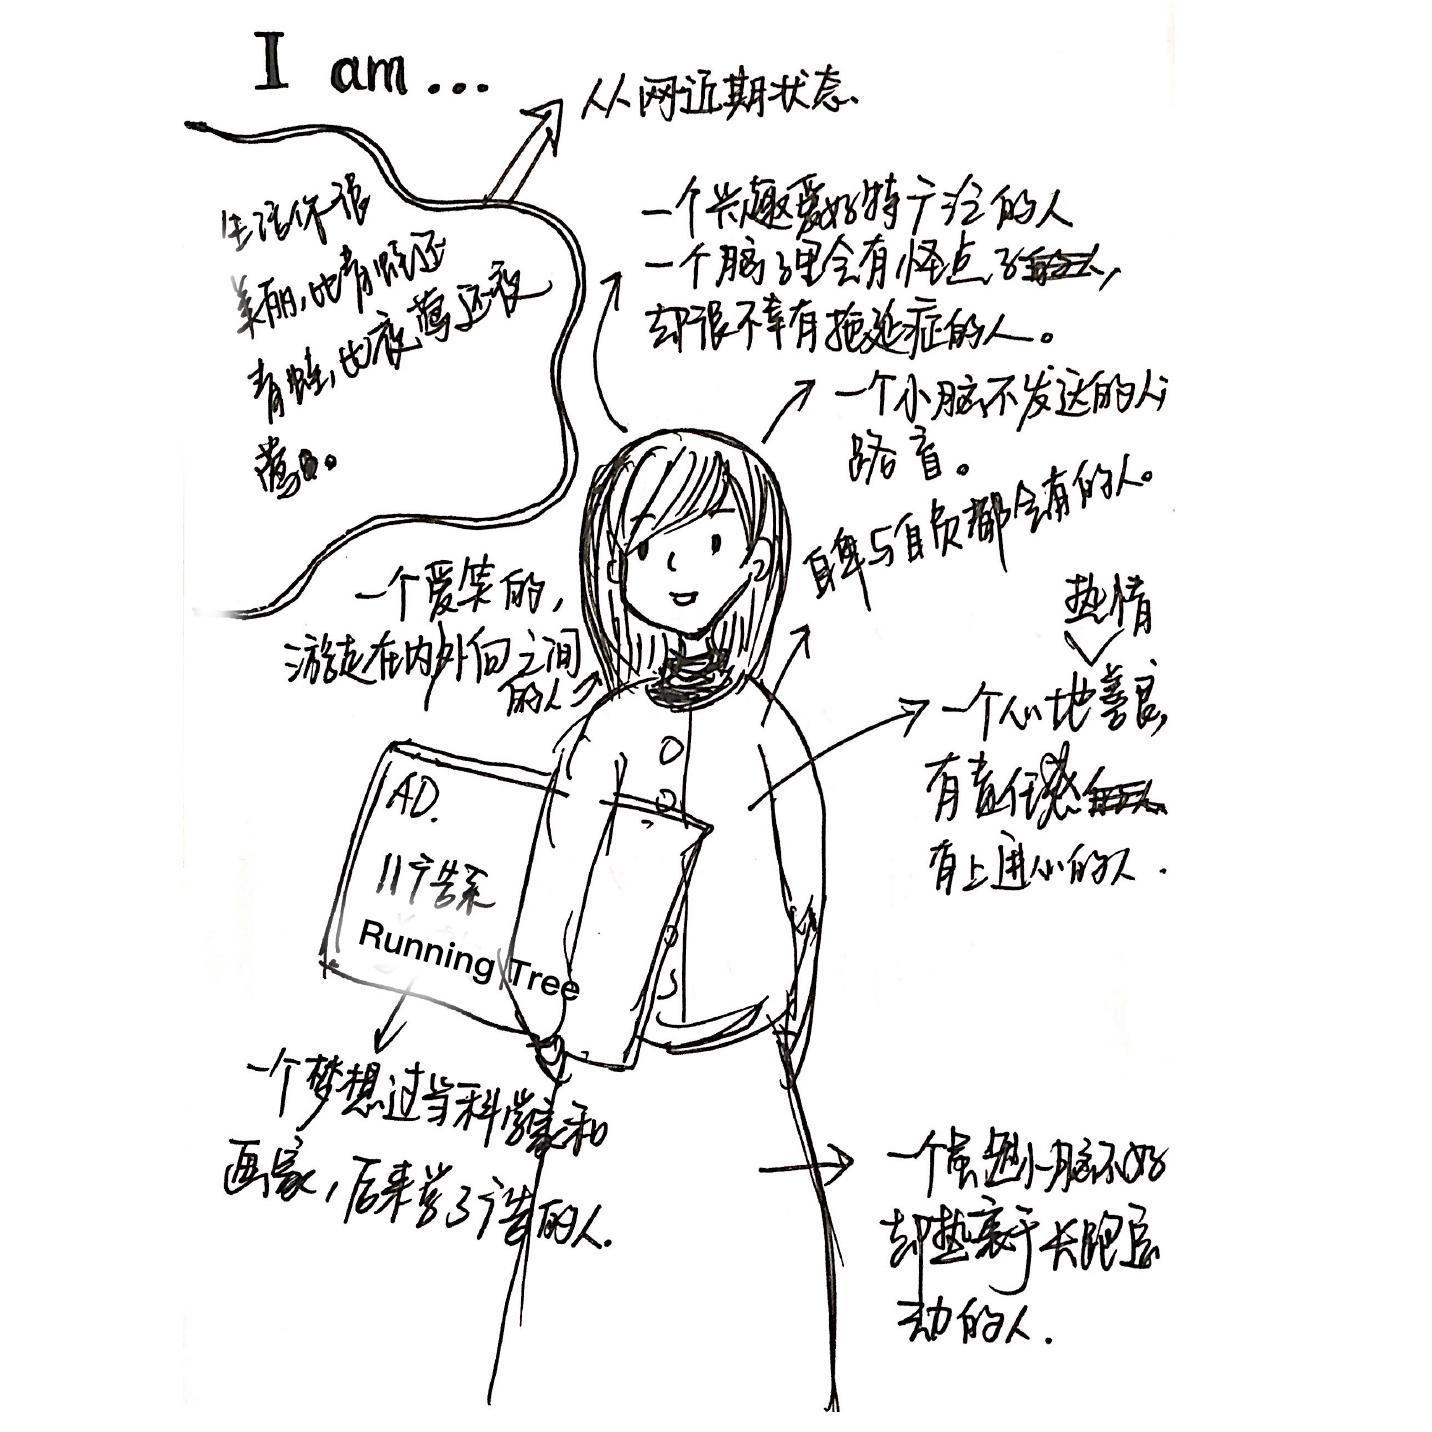 I am...
人人网近期状态.
生活你很
美丽,比青蛙还
青蛙,比夜莺还夜
莺。
一个兴趣爱好特广泛的人
一个脑子里会有怪点子
却很不幸有拖延症的人。
一个小脑不发达的人,
路盲。
自卑与自负都会有的人。
一个爱笑的,
游走在内外向之间
的人
热情
一个心地善良,
有责任感
有上进心的人.
AD.
11广告系
Running Tree
一个梦想过当科学家和
画家,后来学了广告的人.
一个虽然小脑不好
却热衷于长跑运
动的人.